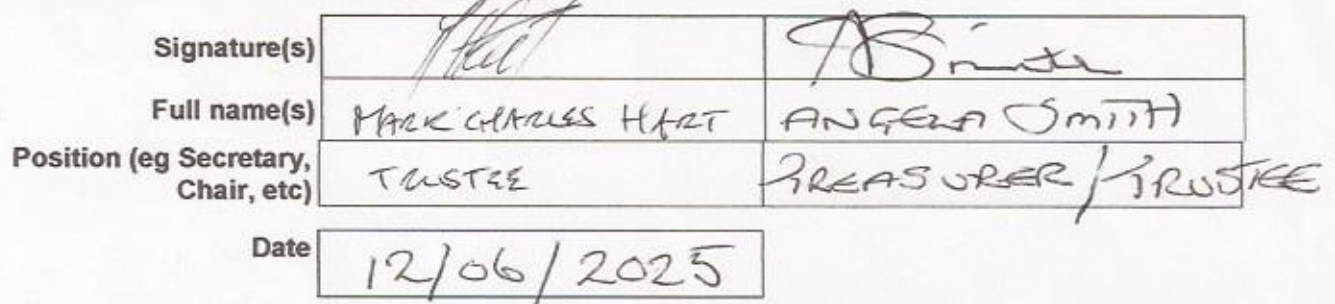 Signature(s)
Full name(s) MARK CHARLES HART ANGELA SMITH
Position (eg Secretary, Chair, etc) TRUSTEE TREASURER / TRUSTEE
Date 12/06/2025